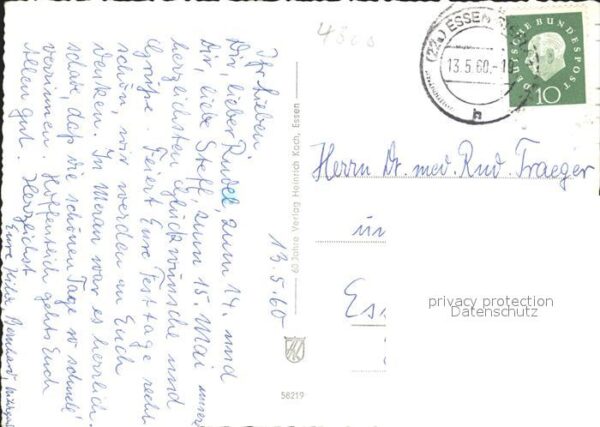 Ihr Lieben
13.5.60
Dir, lieber Rudel, zum 14. und
Dir, liebe Steff, zum 15. Mai unsere
herzlichsten Glückwünsche und
Grüße. Feiert Eure Festtage recht
schön, wir werden an Euch
denken. In Meran war es herrlich.
schade, daß die schönen Tage so schnell
verrinnen. Hoffentlich gehts Euch
allen gut. Herzlichst
Eure
60 Jahre Verlag Heinrich Koch, Essen
58219
4300
(22a) ESSEN
13.5.60.-18
h
DEUTSCHE BUNDESPOST
10
Herrn Dr. med. Rud. Traeger
in
Ess
privacy protection
Datenschutz